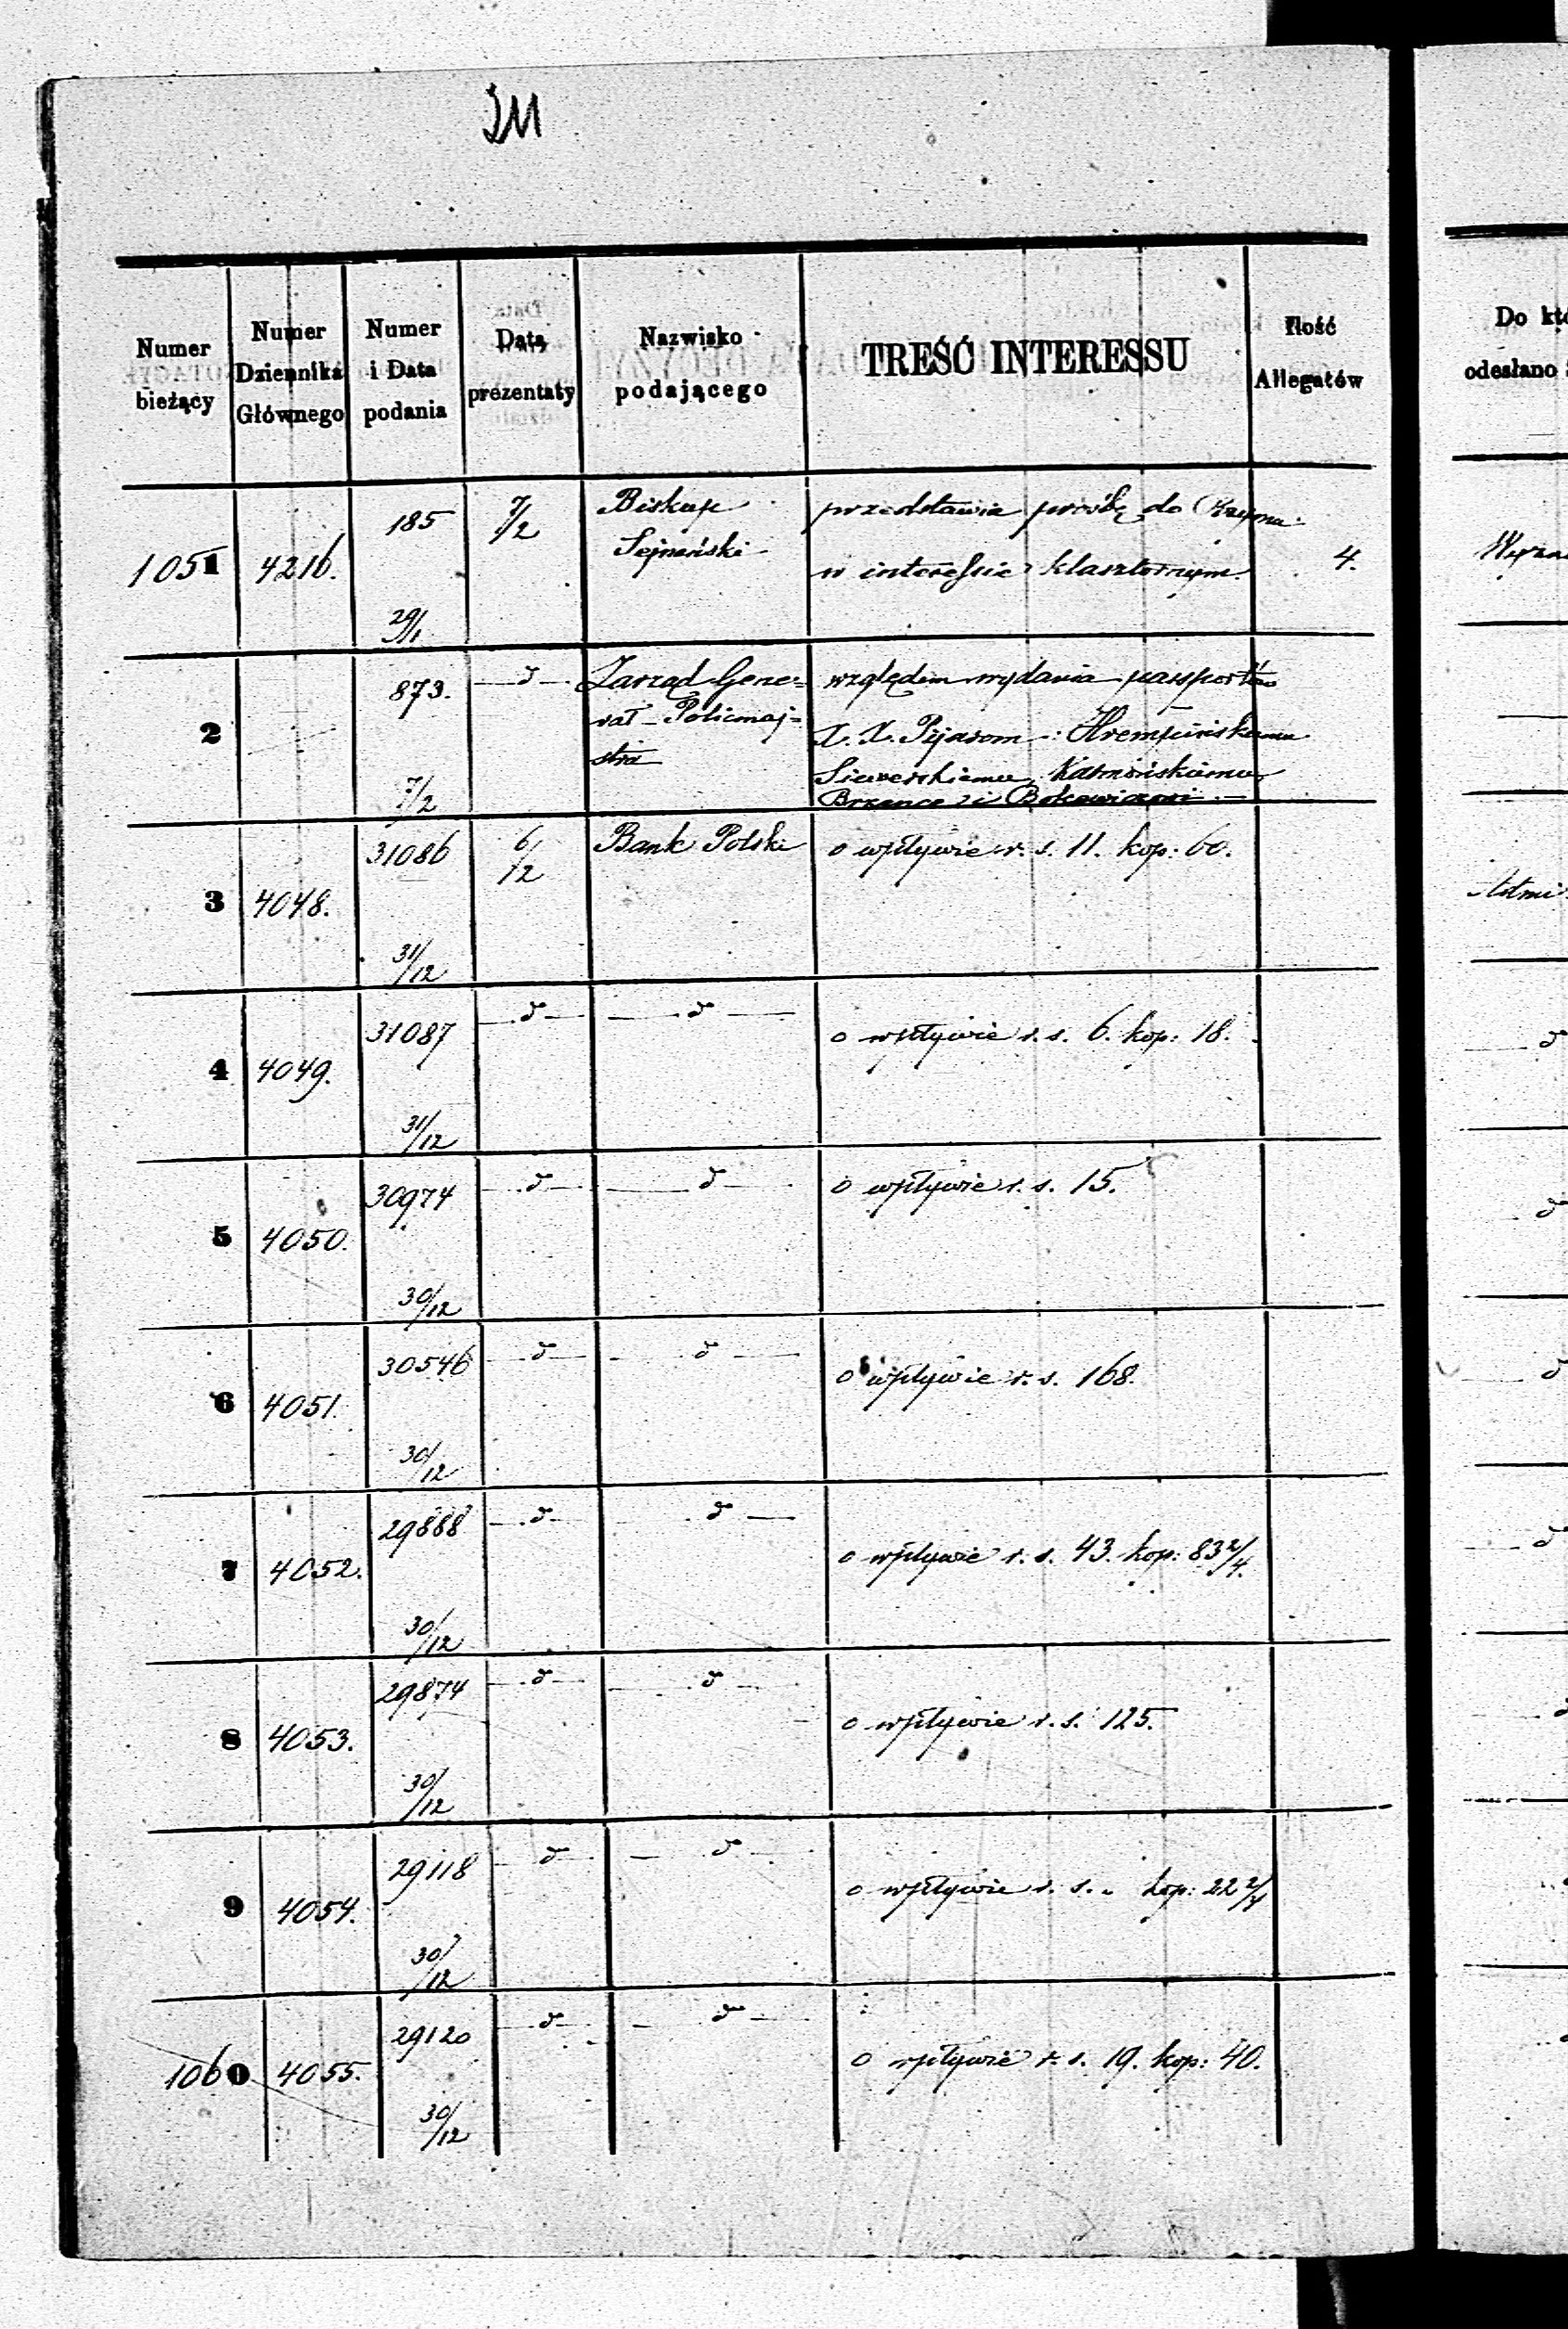 Numer bieżący | Numer Dziennika Głównego | Numer i Data podania | Data prezentaty | Nazwisko podającego | TREŚĆ INTERESSU | Ilość Allegatów
Do któ
odesłano
1051 | 4216. | 185 29/1 | 7/2 | Biskup Sejneński | przedstawia prośbę do Rzymu w interessie klasztornym. | 4.
2 | 873. 7/2 | d | Zarząd Gene= rał Policmaj= stra | względem wydania passportów X. X. Pijarom:
3 | 4048. | 31086 31/12 | 6/2 | Bank Polski | o wpływie r. s. 11. kop: 60.
4 | 4049. | 31087 31/12 | d | d | o wpływie r. s. 6. kop: 18.
d
5 | 4050. | 30974 30/12 | d | d | o wpływie r. s. 15.
d
6 | 4051. | 30546 30/12 | d | d | o wpływie r. s. 168.
d
7 | 4052. | 29888 30/12 | d | d | o wpływie r. s. 43. kop: 83 2/4.
d
8 | 4053. | 29874 30/12 | d | d | o wpływie r. s. 125.
9 | 4054. | 29118 30/12 | d | d | o wpływie r. s. „ kop: 22 2/4
1060 | 4055. | 29120 30/12 | d | d | o wpływie r. s. 19. kop: 40.